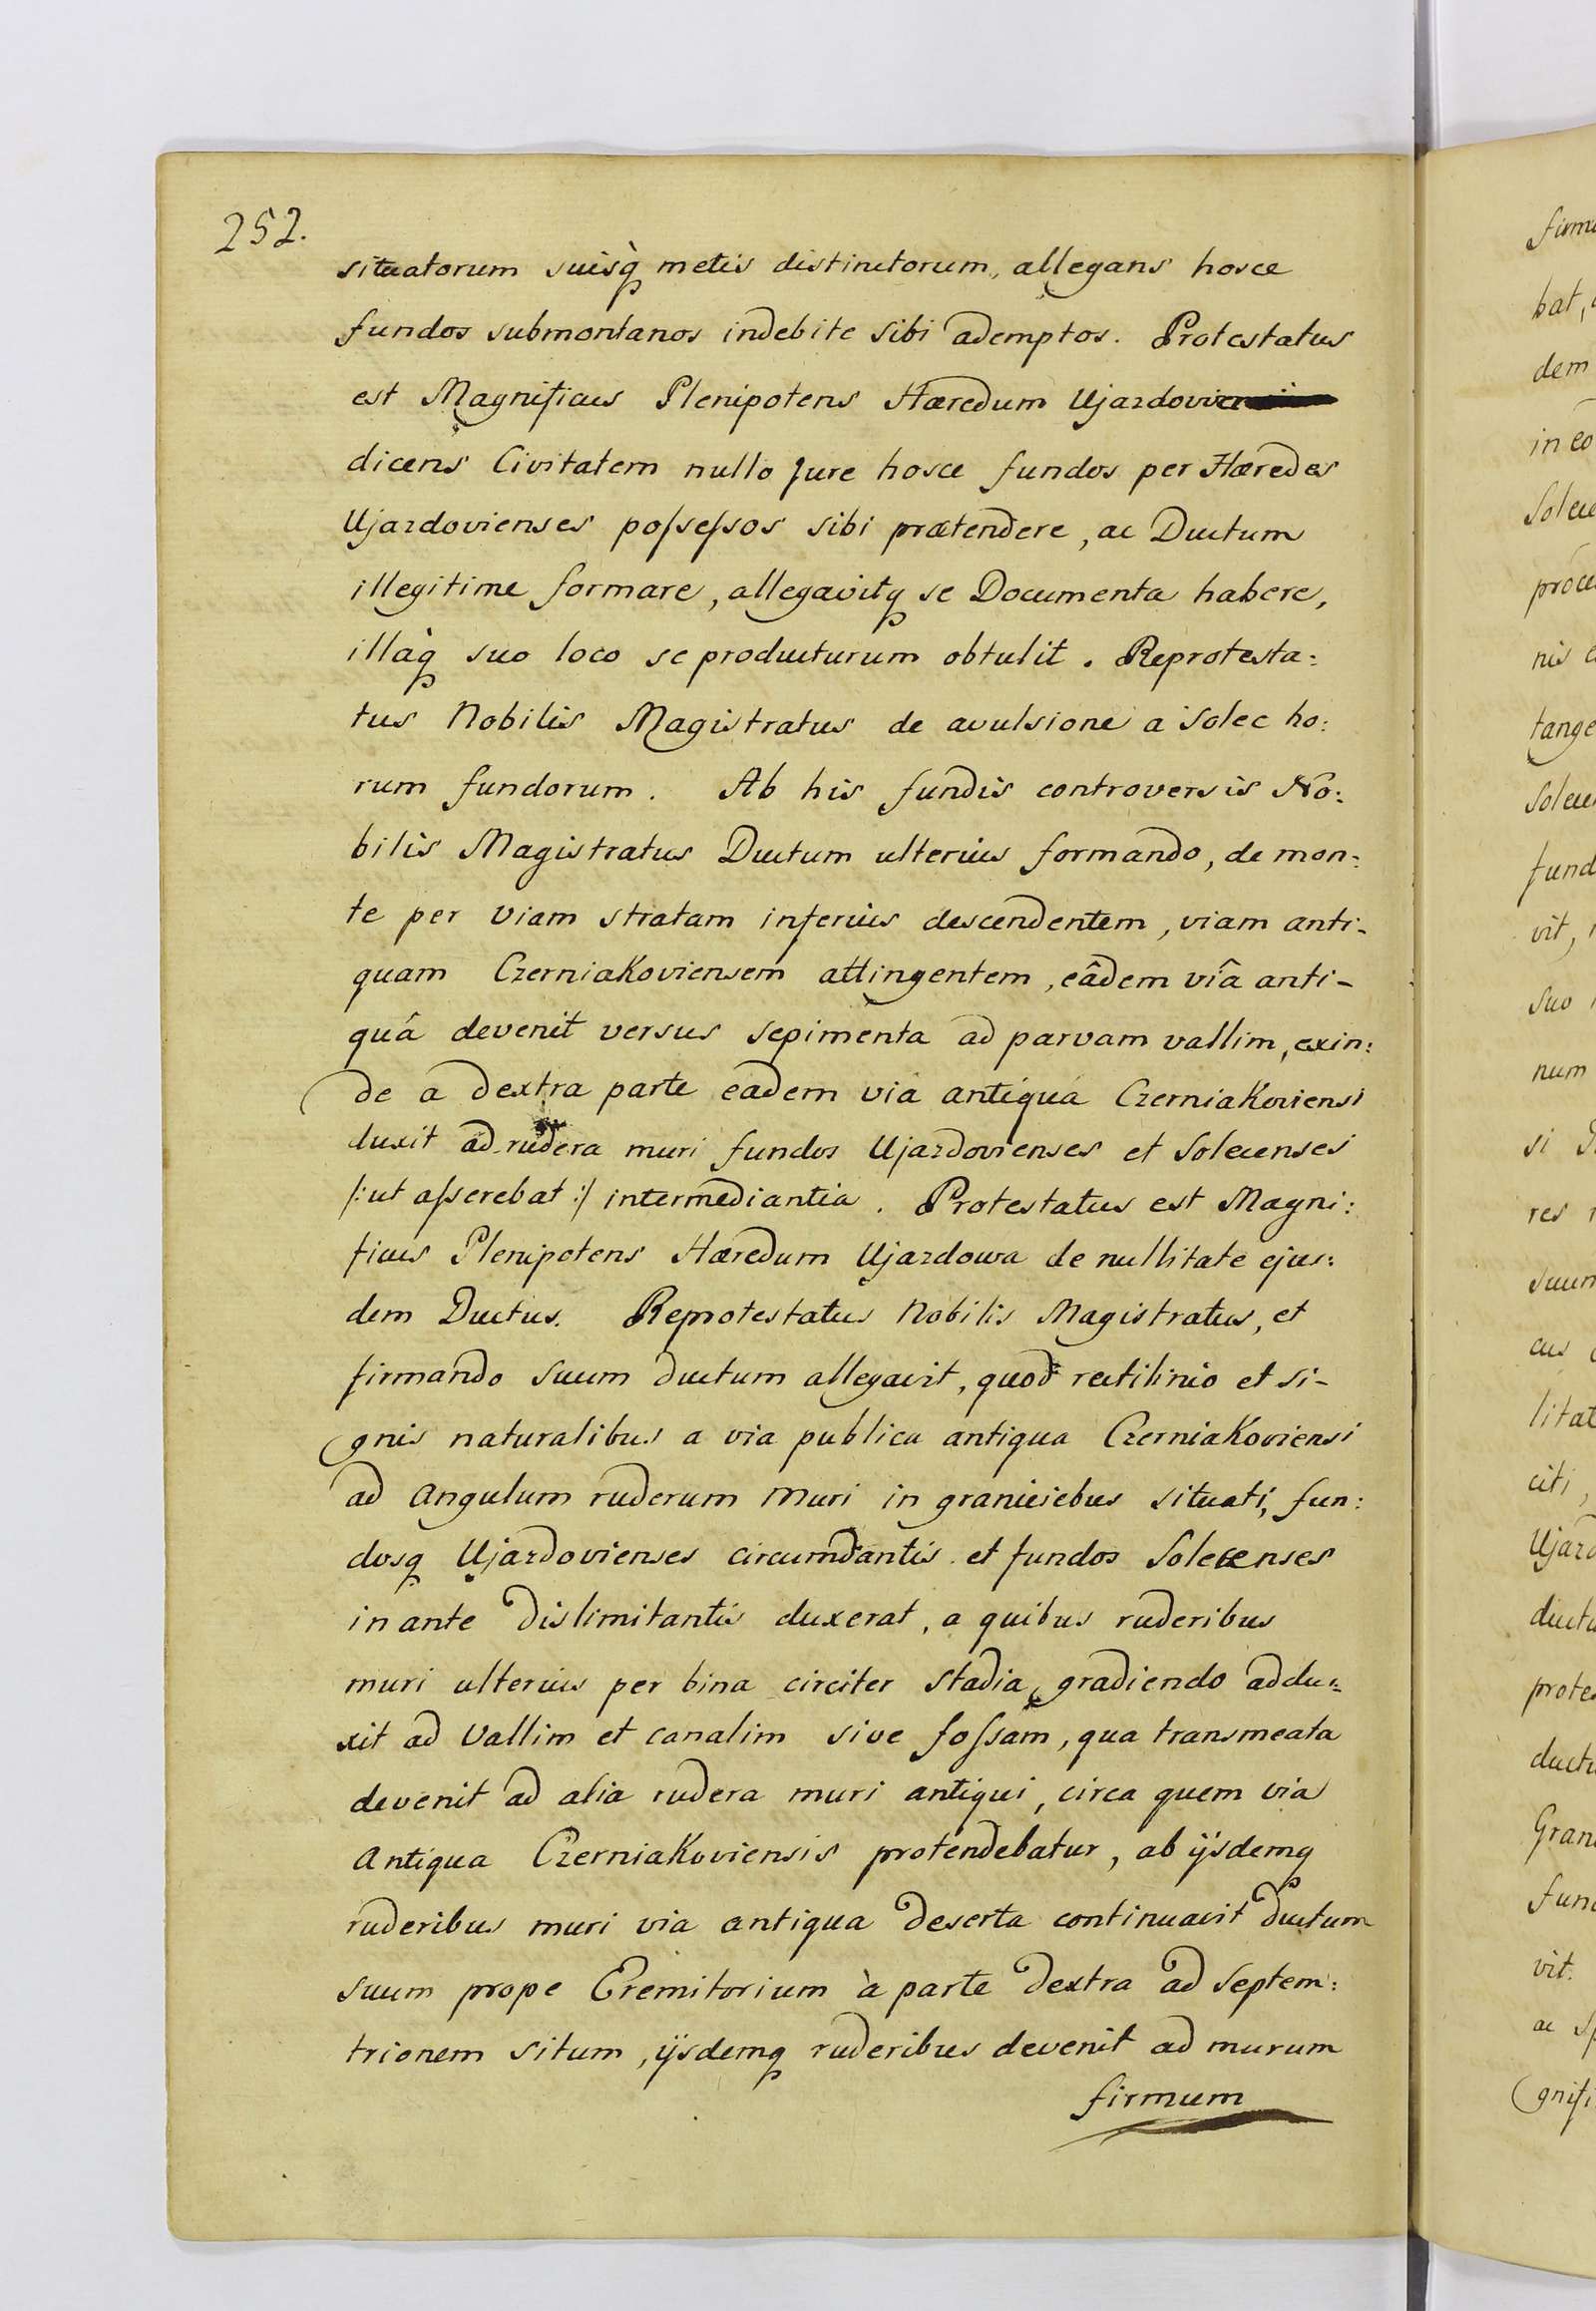 252.
situatorum suisq̀ metis distinctorum, allegans hosce
fundos submontanos indebite sibi ademptos. Protestatus
est Magnificus Plenipotens Hæredum Ujazdovi
dicens Civitatem nullo Jure hosce fundos per Hæredes
Ujazdovienses poſseſsos sibi prætendere, ac Ductum
illegitime formare, allegavitq se Documenta habere,
illàq suo loco se producturum obtulit. Reprotesta:
tus Nobilis Magistratus de avulsione a Solec ho:
rum fundorum. Ab his fundis controversis No:
bilis Magistratus Ductum ulterius formando, de mon:
te per viam stratam inferius descendentem, viam anti-
quam Czerniakoviensem attingentem, eâdem viâ anti-
quâ devenit versus sepimenta ad parvam vallim, exin:
de a dextra parte eadem via antiqua Czerniakoviensi
duxit ad rudera muri fundos Ujazdovienses et Solecenses
/: ut aſserebat :/ intermediantia. Protestatus est Magni:
ficus Plenipotens Hæredum Ujazdowa de nullitate ejus:
dem Ductus. Reprotestatus Nobilis Magistratus, et
firmando suum ductum allegavit, quod rectilinio et si-
gnis naturalibus a via publica antiqua Czerniakoviensi
ad Angulum ruderum Muri in graniciebus situati, fun:
dosq Ujazdovienses circumdantis et fundos Solecenses
in ante dislimitantis duxerat, a quibus ruderibus
muri ulterius per bina circiter stadia gradiendo addu:
xit ad Vallim et canalim sive foſsam, qua transmeata
devenit ad alia rudera muri antiqui, circa quem via
Antiqua Czerniakoviensis protendebatur, ab ijsdemq
ruderibus muri via antiqua deserta continuavit Ductum
suum prope Eremitorium à parte dextra ad Septem:
trionem situm, ijsdemq ruderibus devenit ad murum
firmum
bat,
dem
in eo
nis
num
si
res
suum
cus
citi,
vit.
ac